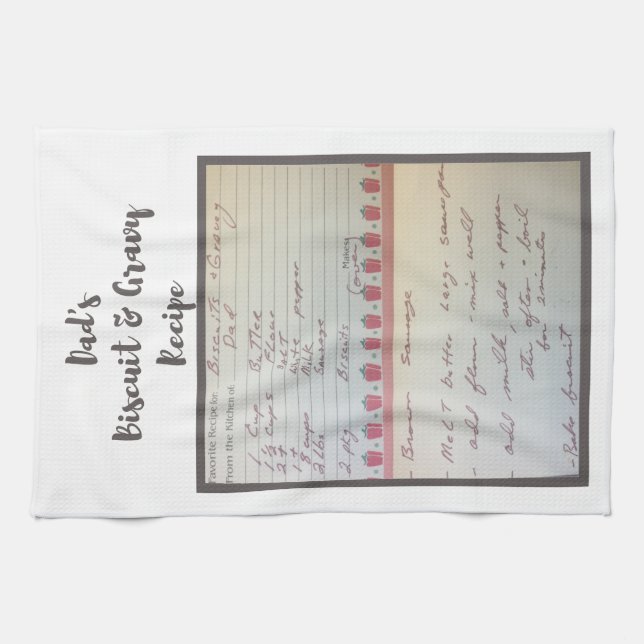 Dad's
Biscuit & Gravy
Recipe
Favorite Recipe for: Biscuits & Gravey
From the Kitchen of: Dad
1 Cup Butter
1½ Cups Flour
2 t Salt
1 t White pepper
8 cups Milk
2 lbs Sausage
2 pkg Biscuits
Makes
(over)
- Brown Sausage
- Melt butter Large sauce pan
- add flour - mix well
- add milk, salt + pepper
stir often + boil
for 2 minutes
- Bake biscuit